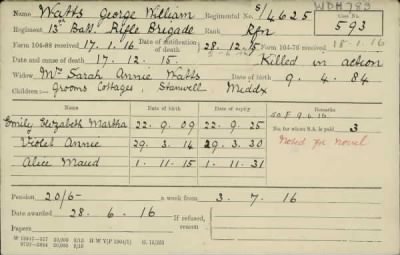 WDH783
Name Watts George William Regimental No. S/4625 Case No. 593
Regiment 13th Batt. Rifle Brigade Rank Rfn
Form 104-88 received 17.1.16 Date of notification of death 28.12.15 Form 104-76 received 18.1.16
Date and cause of death 17.12.15. Killed in action
Widow Mrs Sarah Annie Watts Date of birth 9.4.84
Children:— Grooms Cottages, Stanwell Middx
Name Date of birth Date of expiry Remarks
Emily Elizabeth Martha 22.9.09 22.9.25 No. for whom S.A. is paid 3
Violet Annie 29.3.14 29.3.30 Noted for novel
Alice Maud 1.11.15 1.11.31
Pension 20/6- a week from 3.7.16
Date awarded 28.6.16 If refused, reason
Papers